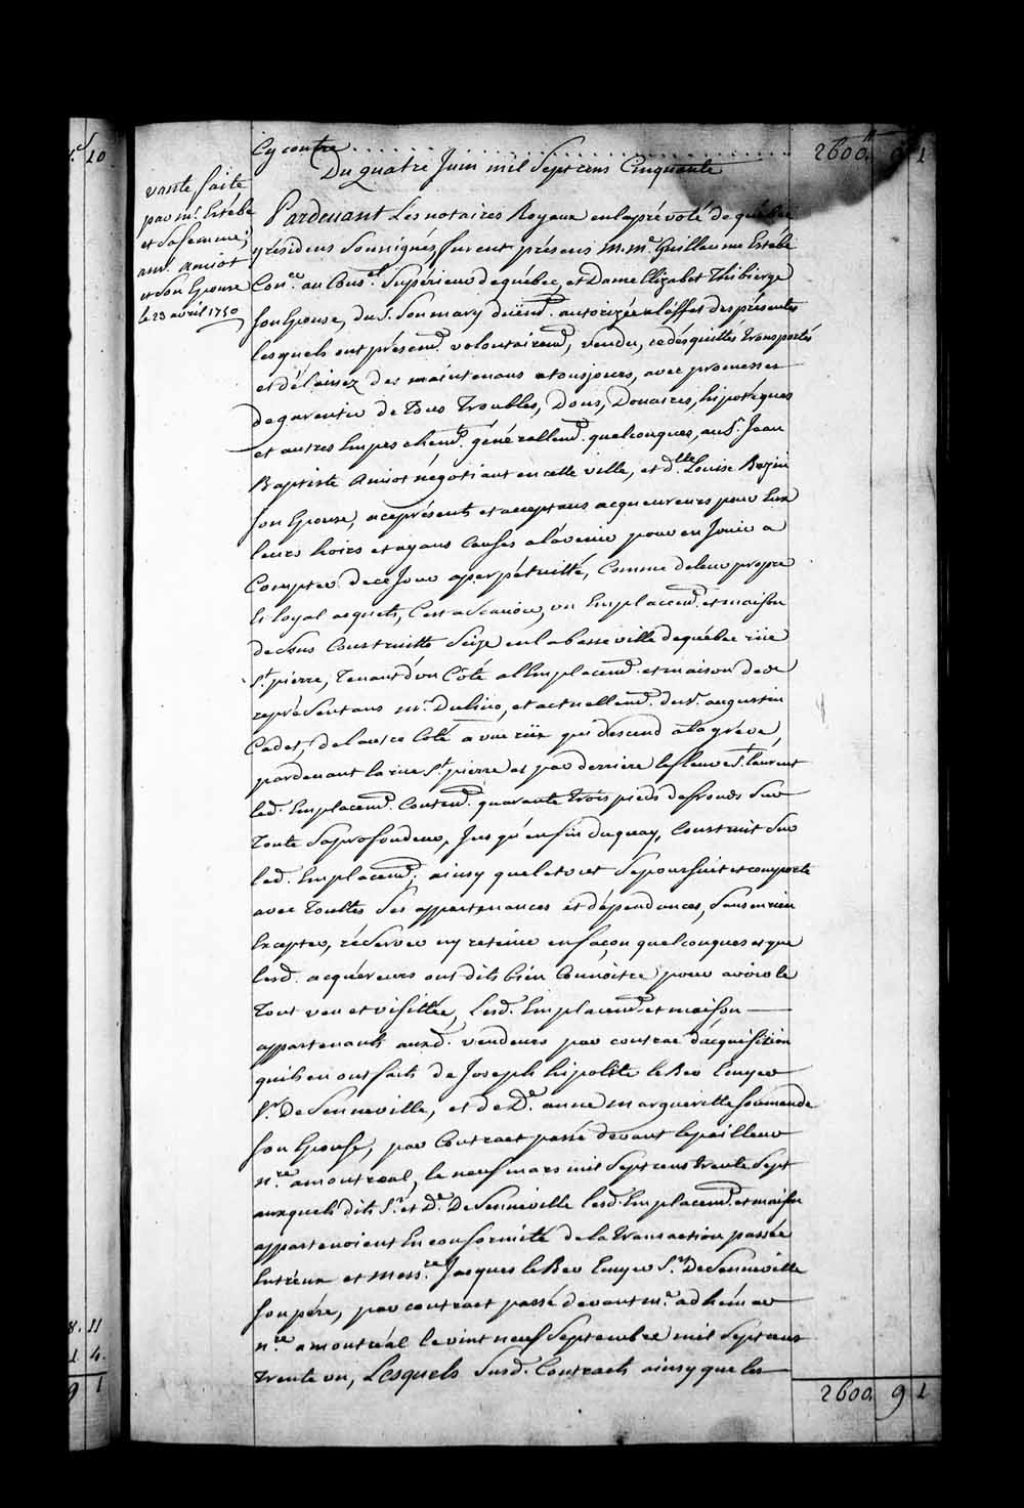 Cy contre . . . . . . . . . . 2600 9 1
Du quatre Juin mil Sept cens Cinquante
vante faite
par mr. Estébe
et Sa femme;
aux. amiot
et Son Epouse
le 23 avril 1750
Pardevant Les notaires Royaux en la prévoté de québec
résidens Soussignés, furent présens M. Me. Guillaume Estébe
Coner. au Conseil Supérieur de québec, et Dame Elizabet Thibierge
Son Epouse, du S. Son mary düemt. autorizée a l'effet des présentes
lesquels ont présemt. volontairemt, vendu, cédés quittés transportés
et délaissez des maintenans a tousjours, avec promesses
de garentir de Tous Troubles, Dons, Doüaires, hipotéques
et autres Empeschemts. générallemt. quelconques, au S. Jean
Baptiste Amiot négotiant en cette ville, et dlle. Louise Bazin
Son Epouse, a ce présents et acceptans acquereurs pour Eux
leurs hoirs et ayans Causes a l'avenir pour en Jouir a
Compter de ce Jour a perpétuitté, Comme de leur propre
Et loyal acquets, C'est a Scavoir, un Emplacemt. et maison
dessus Construitte Seize en la basse ville de québec rüe
St. pierre, Tenant d'un Côté a l'Emplacemt. et maison de
représentans mr. , et actuellemt. du S. augustin
Cadet, de l'autre Coté a une rüe qui descend a la gréve,
pardevant la rue St. pierre et par derriere le fleuve St. laurent
led. Emplacemt. Content. quarante trois pieds de fronds Sur
Toute Sa profondeur, Jusqu'en fin du quay, Construit Sur
led. Emplacemt; ainsy que le tout Se poursuit et comporte
avec Touttes Ses appartenances et dépendances, Sans en rien
Excepter, réserver ny retenir en façon quelconques et que
lesd. acquéreurs ont dits bien Connoistre pour avoir le
Tout veu et visittée, Lesd. Emplacemt. et maison
appartenants auxd. vendeurs par contrat d'acquisition
qu'ils en ont faits de Joseph hipolite le Ber Ecuyer
Sr. De Senneville, et de De. anne marguerite Soumande
Son Epouse, par Contract passé devant lepailleur
nre. a montreal, le neuf mars mil Sept cens trente Sept
auxquels dits Sr. et De. De Senneville lesd. Emplacemt. et maison
appartenoient En conformité de la transaction passée
Entr'eux et Messre. Jacques le Ber Ecuyer Sr. De Senneville
Son pére, par contract passé devant me. adhémar
nre. a montréal le vint neuf Septembre mil Sept cens
Trente un, Lesquels Susd. Contracts ainsy que les
2600. 9 1